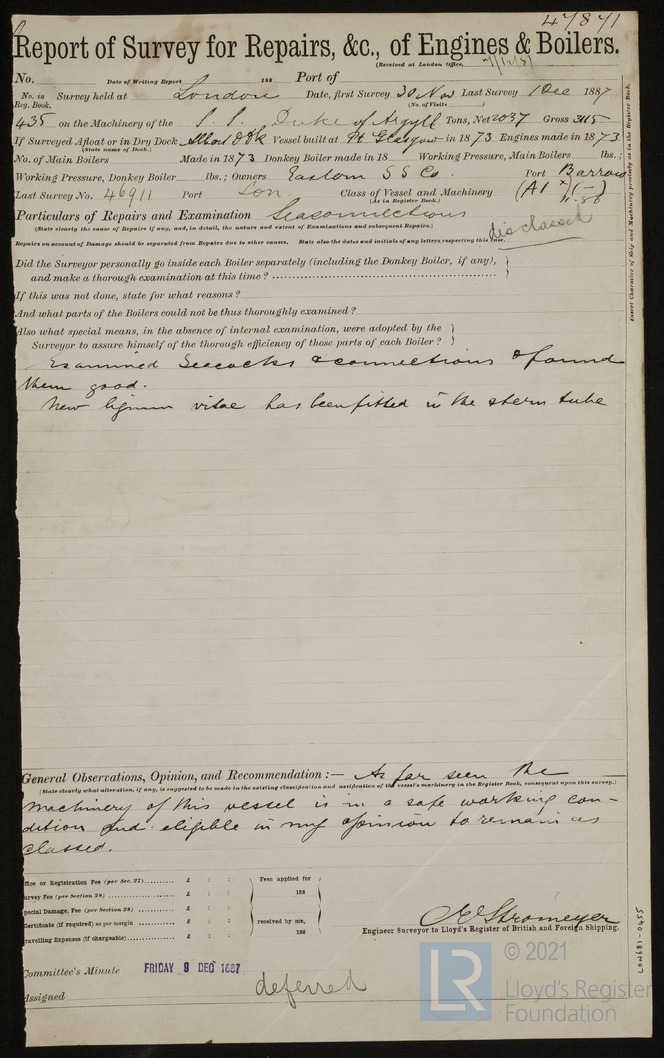 47871
Report of Survey for Repairs, &c., of Engines & Boilers.
(Received at London Office,
No. Date of Writing Report 188 Port of
No. in Reg. Book. Survey held at London Date, first Survey 30 Nov Last Survey 1 Dec 1887
(No. of Visits )
435 on the Machinery of the S. S. Duke of Argyll Tons, Net 2037 Gross 3115
If Surveyed Afloat or in Dry Dock Albert D Dk Vessel built at Pt Glasgow in 1873 Engines made in 1873
(State name of Dock.)
No. of Main Boilers Made in 1873 Donkey Boiler made in 18 Working Pressure, Main Boilers lbs.;
Working Pressure, Donkey Boiler lbs.; Owners Eastern S S Co. Port Barrow
Last Survey No. 46911 Port Lon. Class of Vessel and Machinery (A1 x) (-)
(As in Register Book.) 11-86
Particulars of Repairs and Examination Seaconnections
disclassed
(State clearly the cause of Repairs if any, and, in detail, the nature and extent of Examinations and subsequent Repairs.)
Repairs on account of Damage should be separated from Repairs due to other causes. State also the dates and initials of any letters respecting this case.
Did the Surveyor personally go inside each Boiler separately (including the Donkey Boiler, if any),
and make a thorough examination at this time?
If this was not done, state for what reasons?
And what parts of the Boilers could not be thus thoroughly examined?
Also what special means, in the absence of internal examination, were adopted by the
Surveyor to assure himself of the thorough efficiency of those parts of each Boiler?
Examined Seacocks & connections & found
them good.
New lignum vitae has been fitted in the stern tube
General Observations, Opinion, and Recommendation:— As far seen the
(State clearly what alteration, if any, is suggested to be made in the existing classification and notification of the vessel's machinery in the Register Book, consequent upon this survey.)
machinery of this vessel is in a safe working con-
dition and eligible in my opinion to remain as
classed.
Office or Registration Fee (per Sec. 27) £ : : Fees applied for
Survey Fee (per Section 28) £ : : 188
Special Damage, Fee (per Section 28) £ : :
Certificate (if required) as per margin £ : : received by me,
Travelling Expenses (if chargeable) £ : : 188
Stromeyer
Engineer Surveyor to Lloyd's Register of British and Foreign Shipping.
Committee's Minute FRIDAY 9 DEC 1887
Assigned deferred
Insert Character of Ship and Machinery precisely as in the Register Book.
LON681-0455
LR
© 2021
Lloyd's Register
Foundation